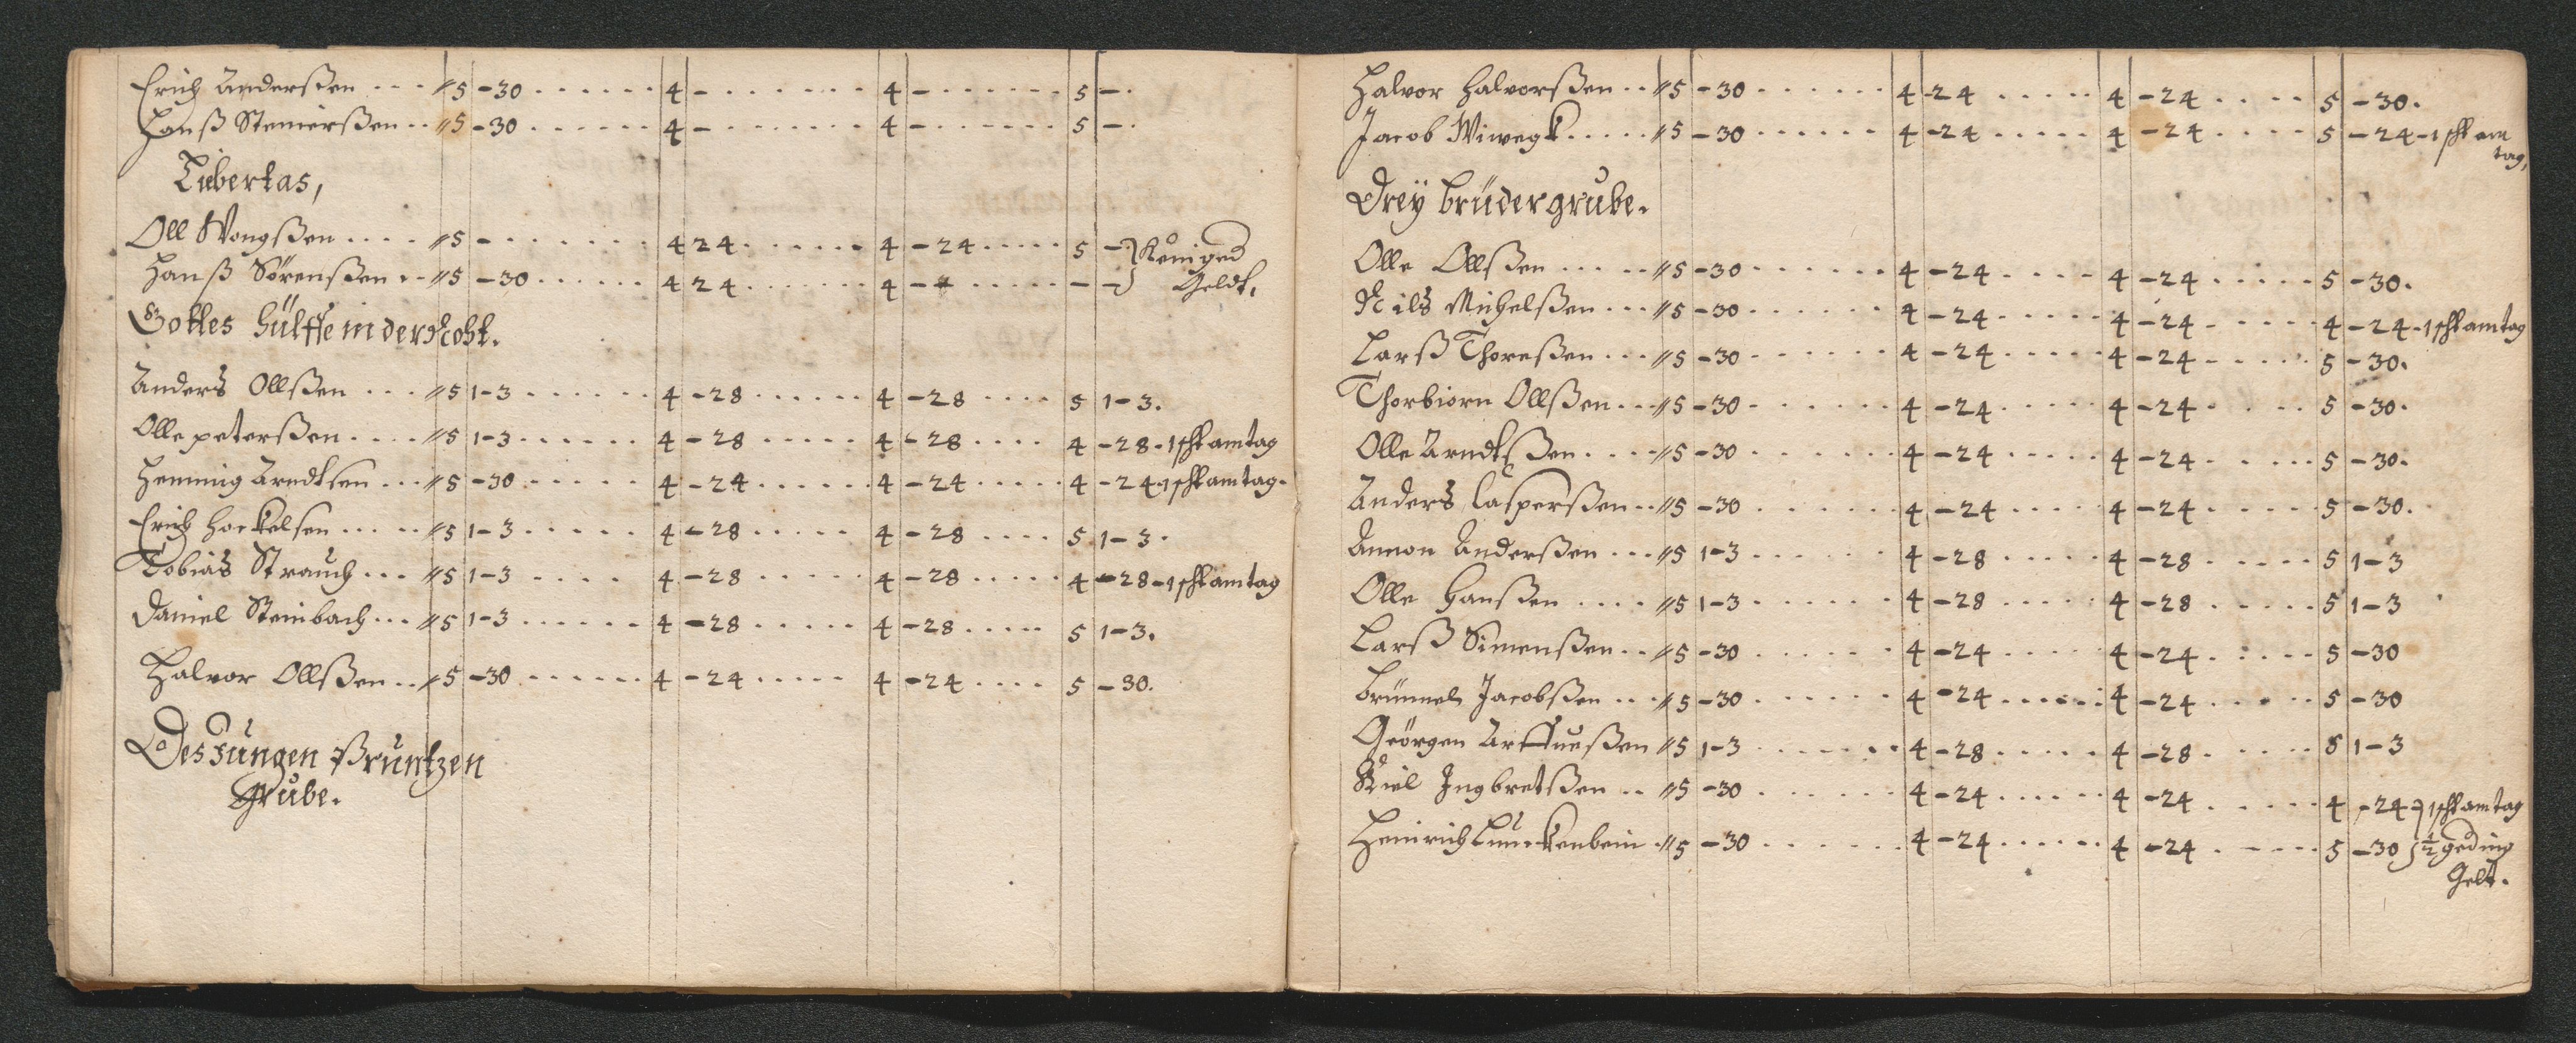 Erich Anderßen ... // 5 - 30 ...... 4 - ....... 4 - ....... 5 -.
Hanß Steinerßen .. // 5 - 30 ...... 4 - ....... 4 - ....... 5 -.
Libertas,
Oll Wongßen .... // 5 - ....... 4 24 ...... 4 - 24 ..... 5 -
Hanß Sörenßen .. // 5 - 30 ...... 4 24 ....... 4 - ..... - -
Geldt.
Gottes Hülffe in der Noht.
Anders Ollßen ... // 5 1-3 ...... 4 - 28 ...... 4 - 28 .... 5 1-3.
Olle peterßen .... // 5 1-3 ...... 4 - 28 ..... 4 - 28 .... 4 - 28 - 1 sht am tag
Hemmig Arndtsen ... // 5 - 30 ...... 4 - 24 ...... 4 - 24 ..... 4 - 24 - 1 sht am tag.
Erich Hoekelsen ..... // 5 1-3 ..... 4 - 28 ..... 4 - 28 .... 5 1-3.
Tobias Strauch ... // 5 1-3 .... 4 - 28 ..... 4 - 28 ..... 4 - 28 - 1 sht am tag
Daniel Steinbach ... // 5 1-3 ...... 4 - 28 ..... 4 - 28 ..... 5 1-3.
Halvor Ollßen .. // 5 - 30 ...... 4 - 24 ..... 4 - 24 .... 5 - 30.
Des Jungen Printzen
Grube.
Halvor Halvorßen .. // 5 - 30 ...... 4 - 24 ..... 4 - 24 .... 5 - 30.
Jacob Wiwegk ..... // 5 - 30 ...... 4 - 24 ..... 4 - 24 ..... 5 - 24 - 1 sht am
tag,
Dreÿ brüder grube.
Olle Ollßen ..... // 5 - 30 ...... 4 - 24 .... 4 - 24 ..... 5 - 30.
Nils Michelßen ... // 5 - 30 ...... 4 - 24 ..... 4 - 24 ..... 4 - 24 - 1 sht am tag
Larß Thoreßen ... // 5 - 30 ...... 4 - 24 ..... 4 - 24 ..... 5 - 30.
Thorbiorn Ollßen ... // 5 - 30 ...... 4 - 24 ..... 4 - 24 ..... 5 - 30.
Olle Arndtßen .... // 5 - 30 ...... 4 - 24 ..... 4 - 24 ..... 5 - 30.
Anders Casperßen .. // 5 - 30 ...... 4 - 24 ..... 4 - 24 ..... 5 - 30.
Amon Anderßen ... // 5 1-3 ...... 4 - 28 ..... 4 - 28 ..... 5 1-3
Olle Hanßen .... // 5 1-3 ...... 4 - 28 ..... 4 - 28 ..... 5 1-3
Larß Simenßen .. // 5 - 30 ...... 4 - 24 ..... 4 - 24 ..... 5 - 30
Brünnel Jacobßen .. // 5 - 30 ...... 4 - 24 ...... 4 - 24 ..... 5 - 30
Geörgen Arffueßen // 5 1-3 ...... 4 - 28 ..... 4 - 28 ..... 5 1-3
Kiel Ingbretßen .. // 5 - 30 ...... 4 - 24 ...... 4 - 24 ..... 4 - 24 - 1 sht am tag
Heinrich Lunckenbein . // 5 - 30 ...... 4 - 24 ...... 4 - 24 ..... 5 - 30 ½ geding
Gelt.